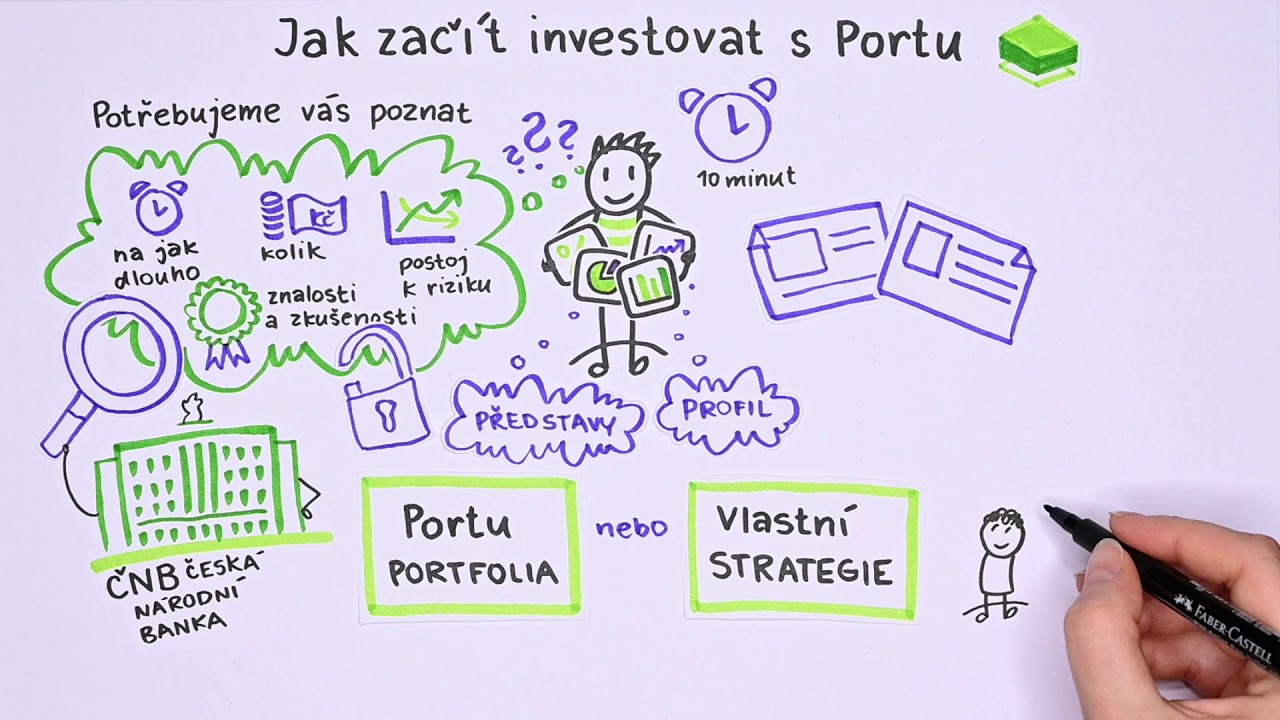 Jak začít investovat s Portu
Potřebujeme vás poznat
???
10 minut
na jak
dlouho
Kč
kolik
postoj
k riziku
znalosti
a zkušenosti
PŘEDSTAVY
PROFIL
Portu
PORTFOLIA
nebo
Vlastní
STRATEGIE
ČNB ČESKÁ
NÁRODNÍ
BANKA
FABER-CASTELL